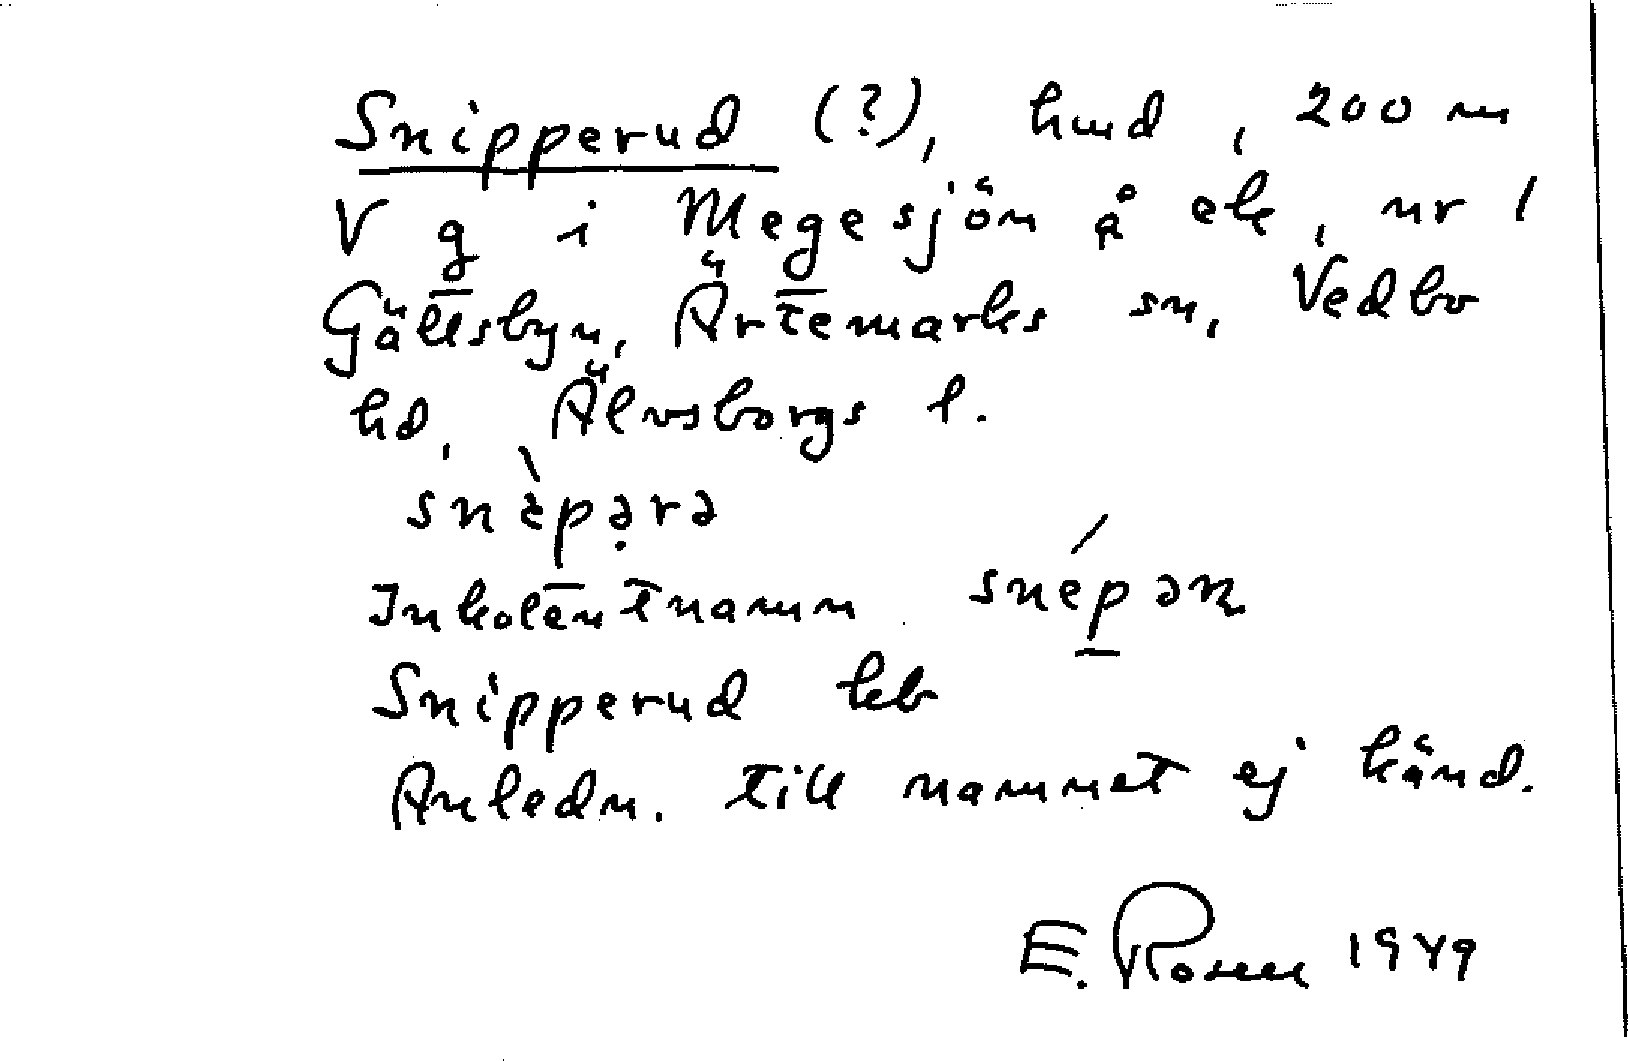 Snipperud (?), hmd, 200 m
V g i Megesjön å ek, nr 1
Gällsbyn, Ärtemarks sn, Vedbo
hd, Älvsborgs l.
snèpərə
Inkolentnamn snépəɳ
Snipperud kb
Anledn. till namnet ej känd.
E. Rosell 1949